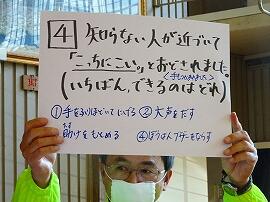 4 知らない人が近づいて
「こっちにこい」とおどされました。
(手をつかまれました)
(いちばん、できるのはどれ)
①手をふりほどいてにげる ②大声をだす
助けをもとめる ④ぼうはんブザーをならす